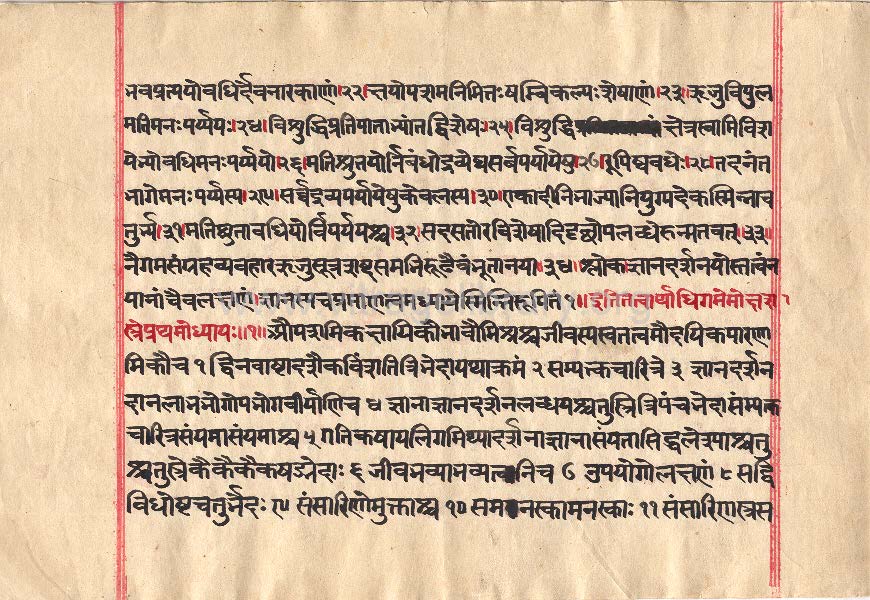 भवप्रत्ययोवधिर्देवनारकाणां।२२।क्षयोपशमनिमित्तः षड्विकल्पः शेषाणां।२३।ऋजुविपुल
मतिमनःपर्य्ययः।२४।विशुद्धिप्रतिपाताभ्यांतद्विशेषः।२५।विशुद्धि क्षेत्रस्वामिविश
येभ्योवधिमनःपर्य्ययो।२६।मतिश्रुतयोर्निबंधोद्रव्येष्वसर्वपर्यायेषु।२७।रूपिष्ववधेः।२८।तदनंत
भागेमनःपर्य्यस्य।२९।सर्व्वद्रव्यपर्यायेषुकेवलस्य।३०।एकादीनिभाज्यानियुगपदेकस्मिन्नाच
तुर्भ्य।३१।मतिश्रुतावधयोर्विपर्ययश्च।३२।सदसतोरविशेषाद्यदृच्छोपलब्धेरुन्मत्तवत्।३३।
नैगमसंग्रहव्यवहारऋजुसूत्रशब्दसमभिरूढैवंभूतानया।३४।श्लोक।ज्ञानदर्शनयोस्तत्वंन
यानांचैवलक्षणं।ज्ञानस्यचप्रमाणत्वमध्यायेस्मिन्निरूपितं१॥इतितत्वार्थाधिगमेमोक्षशा
स्त्रेप्रथमोध्यायः॥१॥औपशमिकक्षायिकौभावौमिश्रश्चजीवस्यस्वतत्वमौदयिकपारणा
मिकौच १ द्विनवाष्टादशैकविंशतित्रिभेदायथाक्रमं २ सम्यक्तचारित्रे ३ ज्ञानदर्शन
दानलाभभोगोपभोगवीर्याणिच ४ ज्ञानाज्ञानदर्शनलब्धयश्चतुस्त्रित्रिपंचभेदासंम्यक्त
चारित्रसंयमासंयमाश्च ५ गतिकषायलिंगमिथ्यादर्शनाज्ञानासंयतासिद्धलेश्याश्चतु
श्चतुस्त्र्येकैकैकैकषड्भेदाः ६ जीवभव्याभव्यत्वानिच ७ उपयोगोलक्षणं ८ सद्वि
विधोष्टचतुर्भेदः ९ संसारिणोमुक्ताश्च १० समनस्कामनस्काः ११ संसारिणस्त्रस